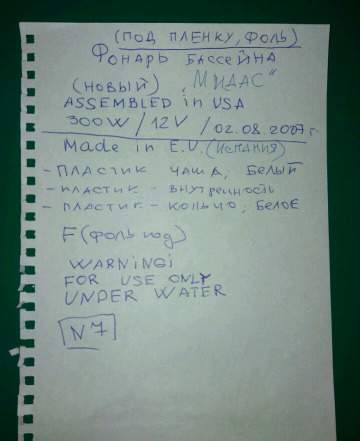 (ПОД ПЛЕНКУ, ФОЛЬ)
ФОНАРЬ БАССЕЙНА
(НОВЫЙ) „МИДАС"
ASSEMBLED in USA
300W / 12V / 02.08.2007г.
Made in E.U. (ИСПАНИЯ)
- ПЛАСТИК ЧАША, БЕЛЫЙ
- ПЛАСТИК - ВНУТРЕННОСТЬ
- ПЛАСТИК - КОЛЬЦО, БЕЛОЕ
F (ФОЛЬ под)
WARNiNGi
FOR USE ONLY
UNDER WATER
N7